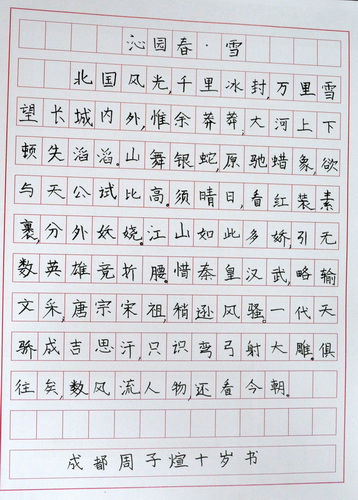 沁园春·雪
北国风光,千里冰封,万里雪
望长城内外,惟余莽莽;大河上下
顿失滔滔。山舞银蛇,原驰蜡象,欲
与天公试比高。须晴日,看红装素
裹,分外妖娆。江山如此多娇,引无
数英雄竞折腰。惜秦皇汉武,略输
文采,唐宗宋祖,稍逊风骚。一代天
骄成吉思汗,只识弯弓射大雕。俱
往矣,数风流人物,还看今朝。
成都周子煊十岁书